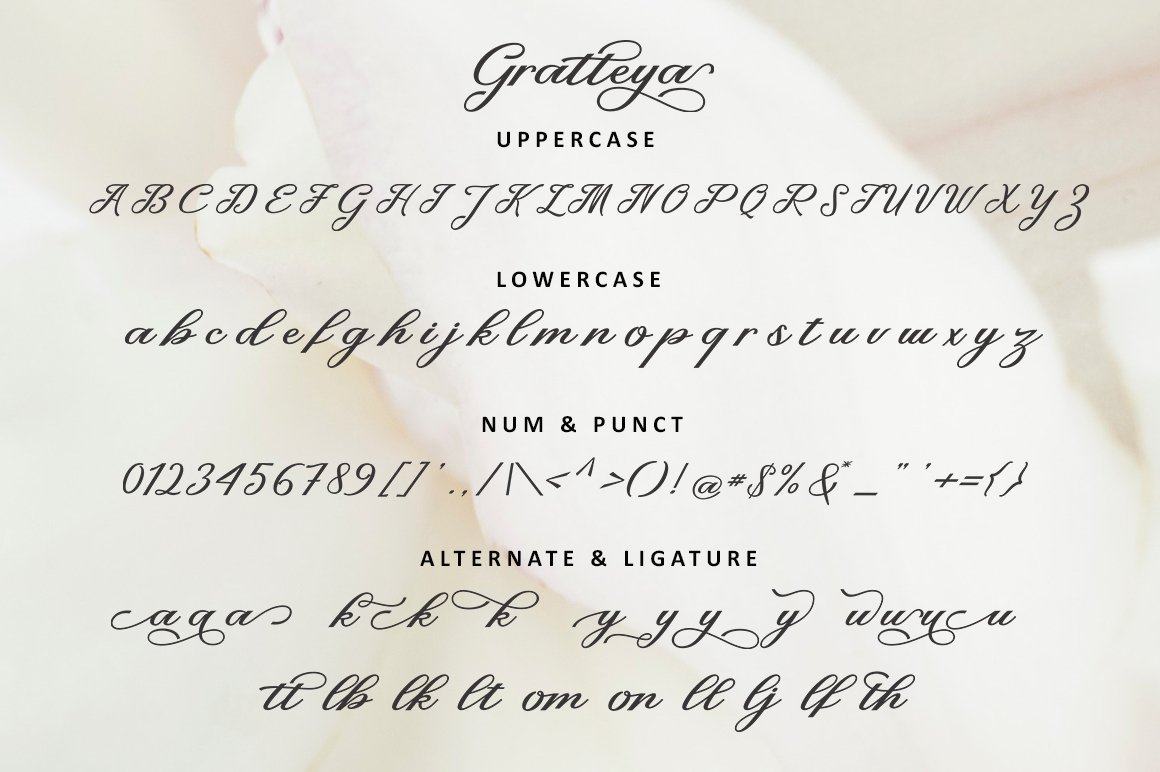 Gratteya
UPPERCASE
A B C D E F G H I J K L M N O P Q R S T U V W X Y Z
LOWERCASE
a b c d e f g h i j k l m n o p q r s t u v w x y z
NUM & PUNCT
0123456789[]'.,/|\<^>()!@#$%&*_"'+={}
ALTERNATE & LIGATURE
a a a k k k y y y y u u u u
tt lb lk lt om on ll lj lf th